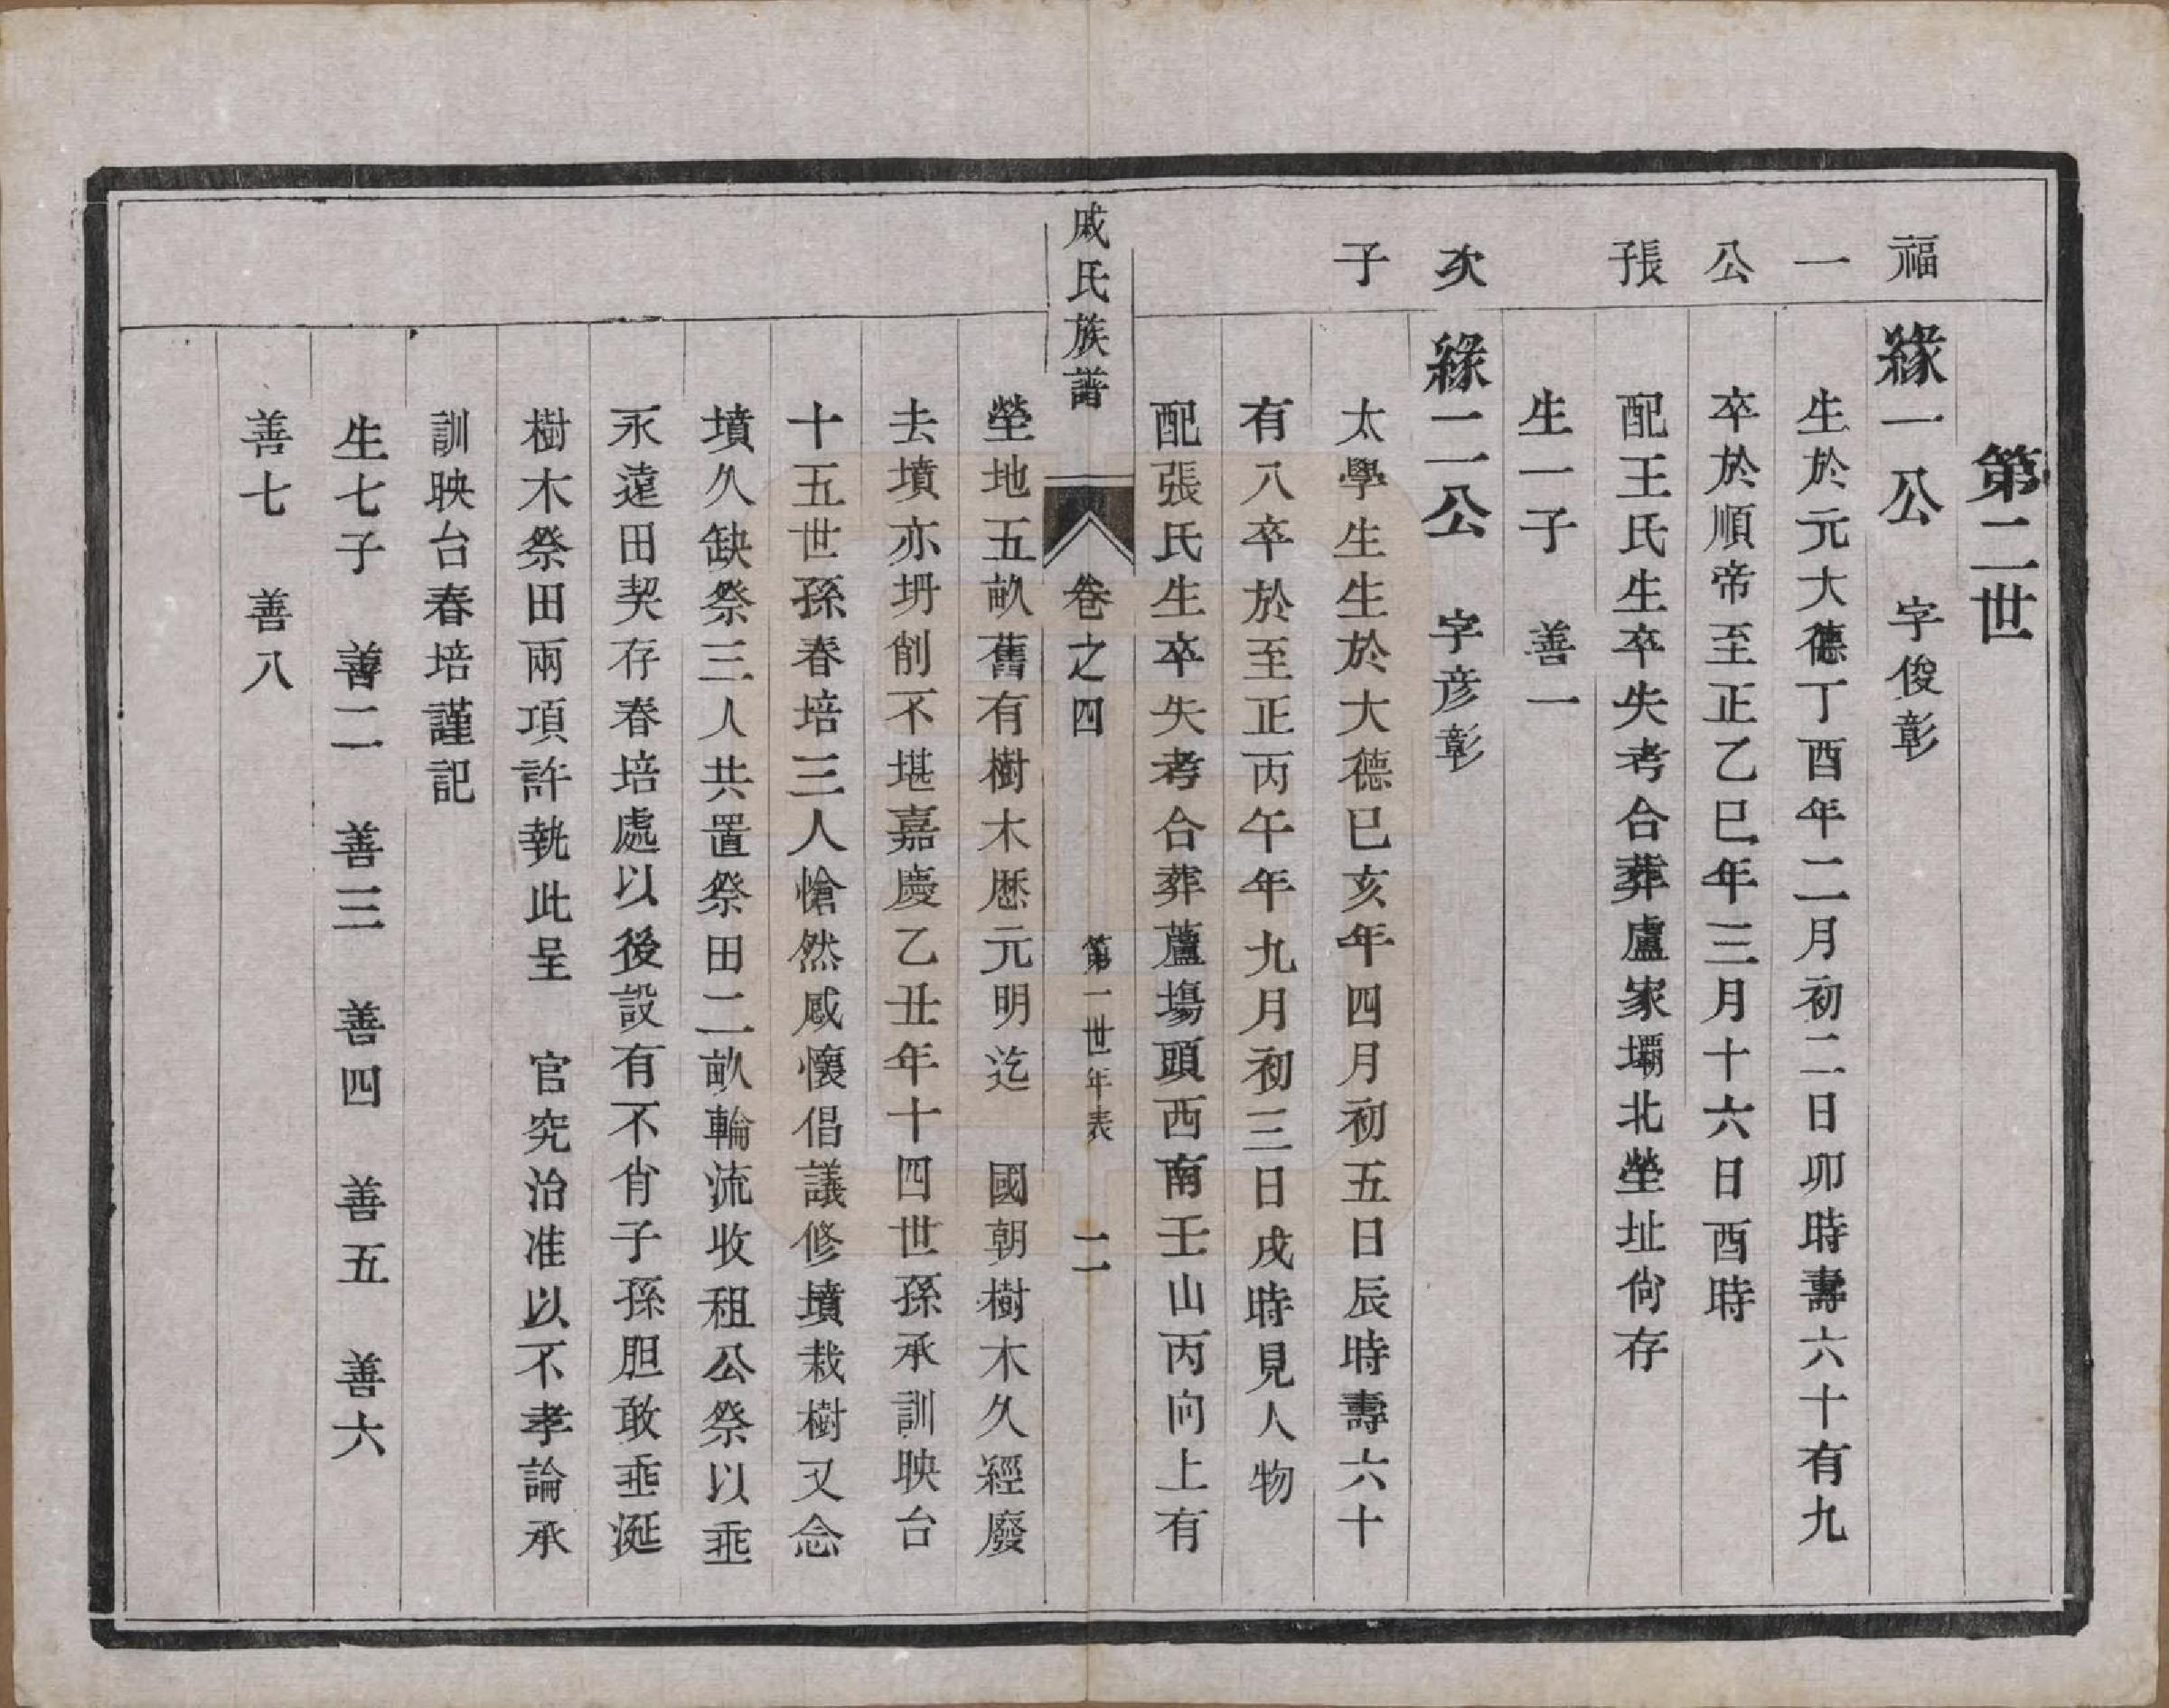 第二世
福一公長子
緣一公　字俊彰
生於元大德丁酉年二月初二日卯時壽六十有九
卒於順帝至正乙巳年三月十六日酉時
配王氏生卒失考合葬盧家壩北塋址尙存
生一子　善一
次子
緣二公　字彦彰
太學生生於大德巳亥年四月初五日辰時壽六十
有八卒於至正丙午年九月初三日戌時見人物
配張氏生卒失考合葬蘆塲頭西南壬山丙向上有
戚氏族譜　卷之四　第一世年表　二
塋地五畝舊有樹木歷元明迄　國朝樹木久經廢
去墳亦坍削不堪嘉慶乙丑年十四世孫承訓映台
十五世孫春培三人愴然感懷倡議修墳栽樹又念
墳久缺祭三人共置祭田二畝輪流收租公祭以垂
永遠田契存春培處以後設有不肖子孫胆敢垂涎
樹木祭田兩項許執此呈　官究治准以不孝論承
訓映台春培謹記
生七子　善二　善三　善四　善五　善六
善七　善八